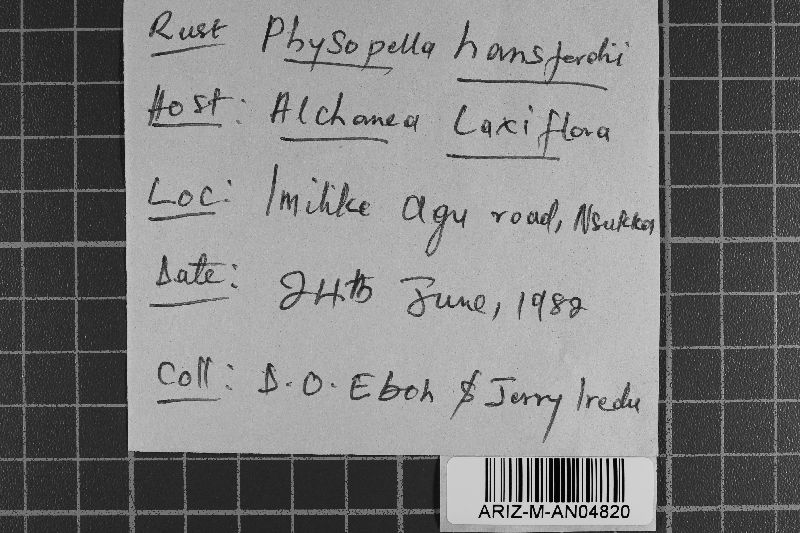 Rust Physopella hansferdii
Host: Alchanea Laxiflora
Loc: Imilike agu road, Nsukka
Date: 24th June, 1982
Coll: D.O. Eboh & Jerry Iredu
ARIZ-M-AN04820